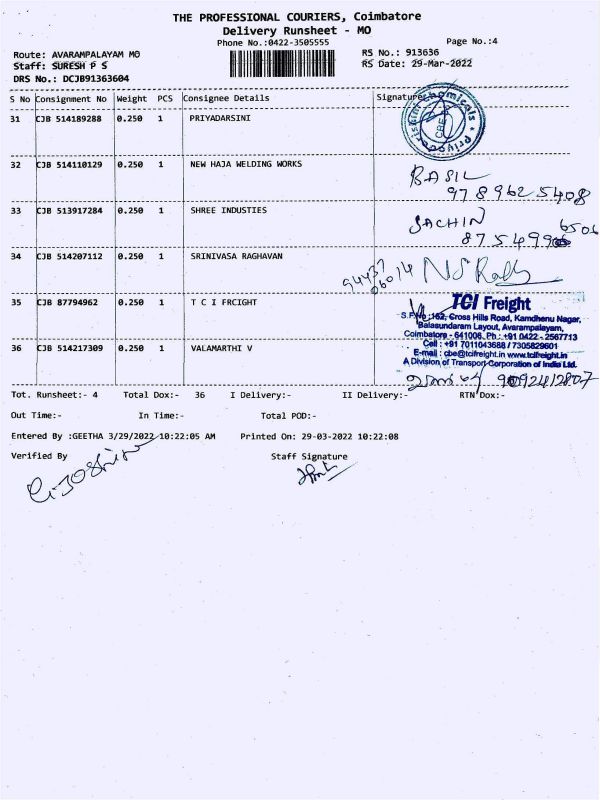 THE PROFESSIONAL COURIERS, Coimbatore
Delivery Runsheet - MO
Phone No.:0422-3505555
Page No.:4
Route: AVARAMPALAYAM MO
RS No.: 913636
Staff: SURESH P S
RS Date: 29-Mar-2022
DRS No.: DCJB91363604
S No Consignment No Weight PCS Consignee Details Signature
31 CJB 514189288 0.250 1 PRIYADARSINI
32 CJB 514110129 0.250 1 NEW HAJA WELDING WORKS
BASIL
9789625408
33 CJB 513917284 0.250 1 SHREE INDUSTIES
SACHIN
34 CJB 514207112 0.250 1 SRINIVASA RAGHAVAN
35 CJB 87794962 0.250 1 T C I FRCIGHT
TCI Freight
S.F.No :162, Cross Hills Road, Kamdhenu Nagar,
Balasundaram Layout, Avarampalayam,
Coimbatore - 641006. Ph : +91 0422 - 2567713
Cell : +91 7011043688 / 7305829601
E-mail : cbe@tcifreight.in www.tcifreight.in
A Division of Transport Corporation of India Ltd.
36 CJB 514217309 0.250 1 VALAMARTHI V
9092412807
Tot. Runsheet:- 4 Total Dox:- 36 I Delivery:- II Delivery:- RTN Dox:-
Out Time:- In Time:- Total POD:-
Entered By :GEETHA 3/29/2022 10:22:05 AM Printed On: 29-03-2022 10:22:08
Verified By Staff Signature